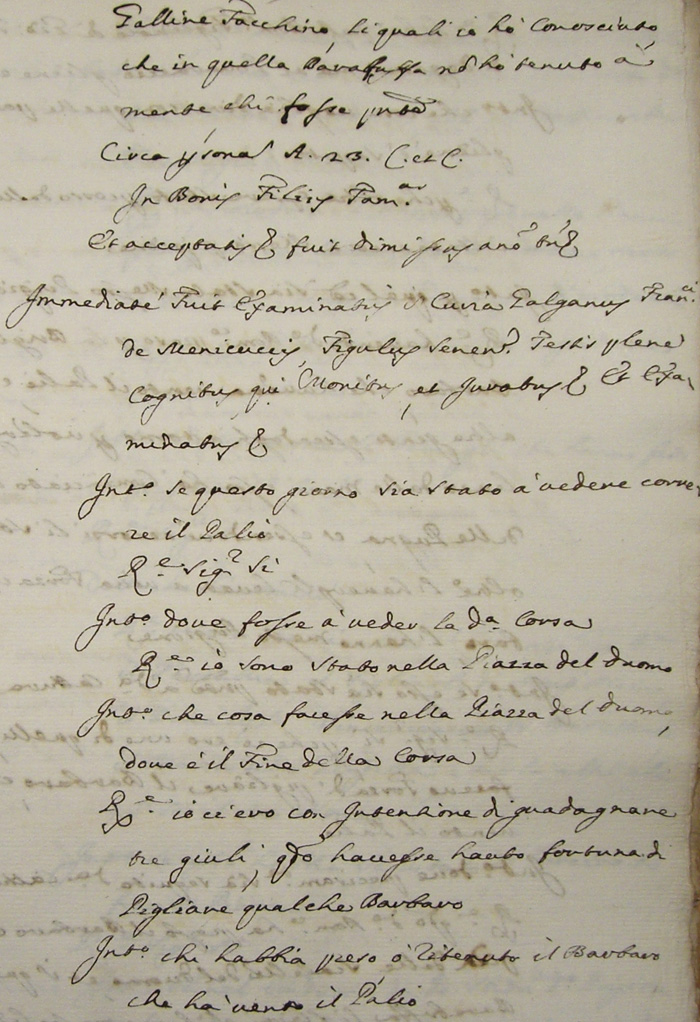 Galline Facchino, li quali io hò Conosciuto
che in quella Baraffuffa nõ hò tenuto à
mente chi fosse
Circa A. 23. C. et C.
In Bonis Filius Fam.as
Et acceptatis fuit dimissus
Immediatè Fuit Examinatus Curia Galganus Fran.ci
de Menicuccis, Figulus Senen. Testis plene
Cognitus, qui Monitus, et Juratus Et Exa-
minatus
Int.o se questo giorno sia stato à vedere corre-
re il Palio
R.e Sig.r Si
Int.o dove fosse à veder la d.a Corsa
R.e io sono stato nella Piazza del duomo
Int.o che cosa facesse nella Piazza del duomo,
dove è il Fine della Corsa
R.e io ci ero con Intentione di guadagnare
tre giuli, qdo havesse hauto fortuna di
Pigliare qualche Barbaro
Int.o chi habbia preso ò ritenuto il Barbaro
che hà vento il Palio